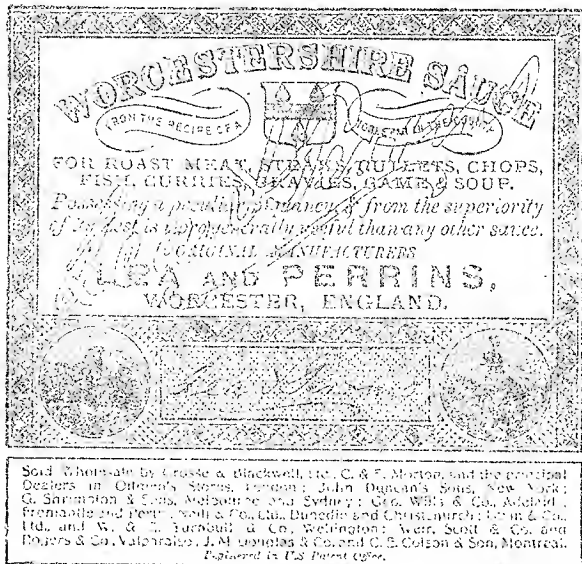 WORCESTERSHIRE SAUCE
FROM THE RECIPE OF A NOBLEMAN IN THE COUNTY
FOR ROAST MEAT, STEAKS, CUTLETS, CHOPS,
FISH, CURRIES, GRAVIES, GAME & SOUP.
Possessing a peculiar piquancy & from the superiority
of its zest is more generally useful than any other sauce.
ORIGINAL MANUFACTURERS
LEA AND PERRINS,
WORCESTER, ENGLAND.
Lea & Perrins
Sold Wholesale by Crosse & Blackwell, Ltd., C. & E. Morton, and the principal
Dealers in Oilmen's Stores, London; John Duncan's Sons, New York;
G. Shrimpton & Sons, Melbourne and Sydney; Geo. Wills & Co., Adelaide,
Fremantle and Perth; Neill & Co., Ltd., Dunedin and Christchurch; & Co.,
Ltd., and W. & G. Turnbull & Co., Wellington; Weir, Scott & Co. and
Rogers & Co., Valparaiso; J. M. Douglas & Co. and C. E. Colson & Son, Montreal.
Registered in U.S. Patent Office.